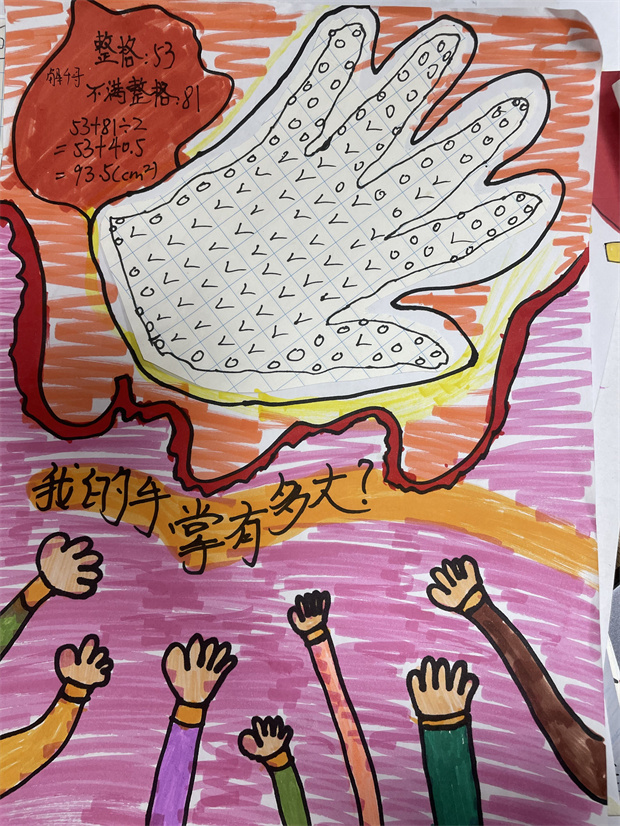 整格:53
不满整格:81
53+81÷2
=53+40.5
=93.5(cm²)
我的手掌有多大?